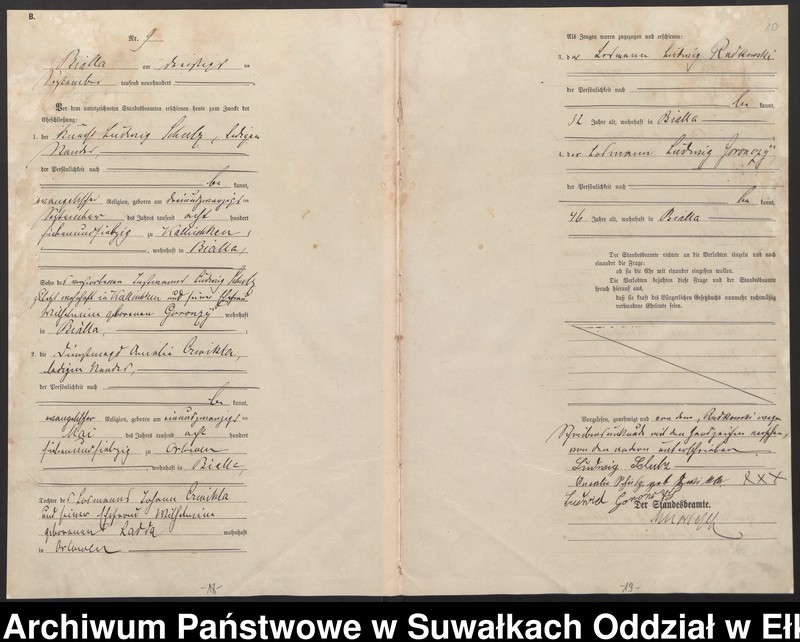 B.
Nr. 9
Bialla am dreißigsten
September tausend neunhundert
Vor dem unterzeichneten Standesbeamten erschienen heute zum Zwecke der
Eheschließung:
1. der Knecht Ludwig Schulz, ledigen
Standes,
der Persönlichkeit nach
be kannt,
evangelischer Religion, geboren am dreiundzwanzigsten
September des Jahres tausend acht hundert
siebenundsiebzig zu Kallischken
, wohnhaft in Bialla,
Sohn des verstorbenen Instmanns Ludwig Schulz
zuletzt wohnhaft in Kallischken und seiner Ehefrau
Wilhelmine geborenen Goronzy wohnhaft
in Bialla,
2. die Dienstmagd Amalie Czwikla,
ledigen Standes,
der Persönlichkeit nach
be kannt,
evangelischer Religion, geboren am einundzwanzigsten
Mai des Jahres tausend acht hundert
siebenundsiebzig zu Orlowen
wohnhaft in Bialla,
Tochter des Losmanns Johann Czwikla
und seiner Ehefrau Wilhelmine
geborenen wohnhaft
in Orlowen
-18-
10
Als Zeugen waren zugezogen und erschienen:
3. der Losmann Ludwig Radkowski
der Persönlichkeit nach
be kannt,
52 Jahre alt, wohnhaft in Bialla
4. der Losmann Ludwig Goronzy
der Persönlichkeit nach
be kannt,
46 Jahre alt, wohnhaft in Bialla
Der Standesbeamte richtete an die Verlobten einzeln und nach
einander die Frage:
ob sie die Ehe mit einander eingehen wollen.
Die Verlobten bejahten diese Frage und der Standesbeamte
sprach hierauf aus,
daß sie kraft des Bürgerlichen Gesetzbuchs nunmehr rechtmäßig
verbundene Eheleute seien.
Vorgelesen, genehmigt und von dem Radkowski wegen
Schreibensunkunde mit den Handzeichen versehen,
von den andern unterschrieben
Ludwig Schulz
Amalie Schulz geb. Czwikla XXX
Ludwig Goronzy
Der Standesbeamte.
-19-
Archiwum Państwowe w Suwałkach Oddział w Eł